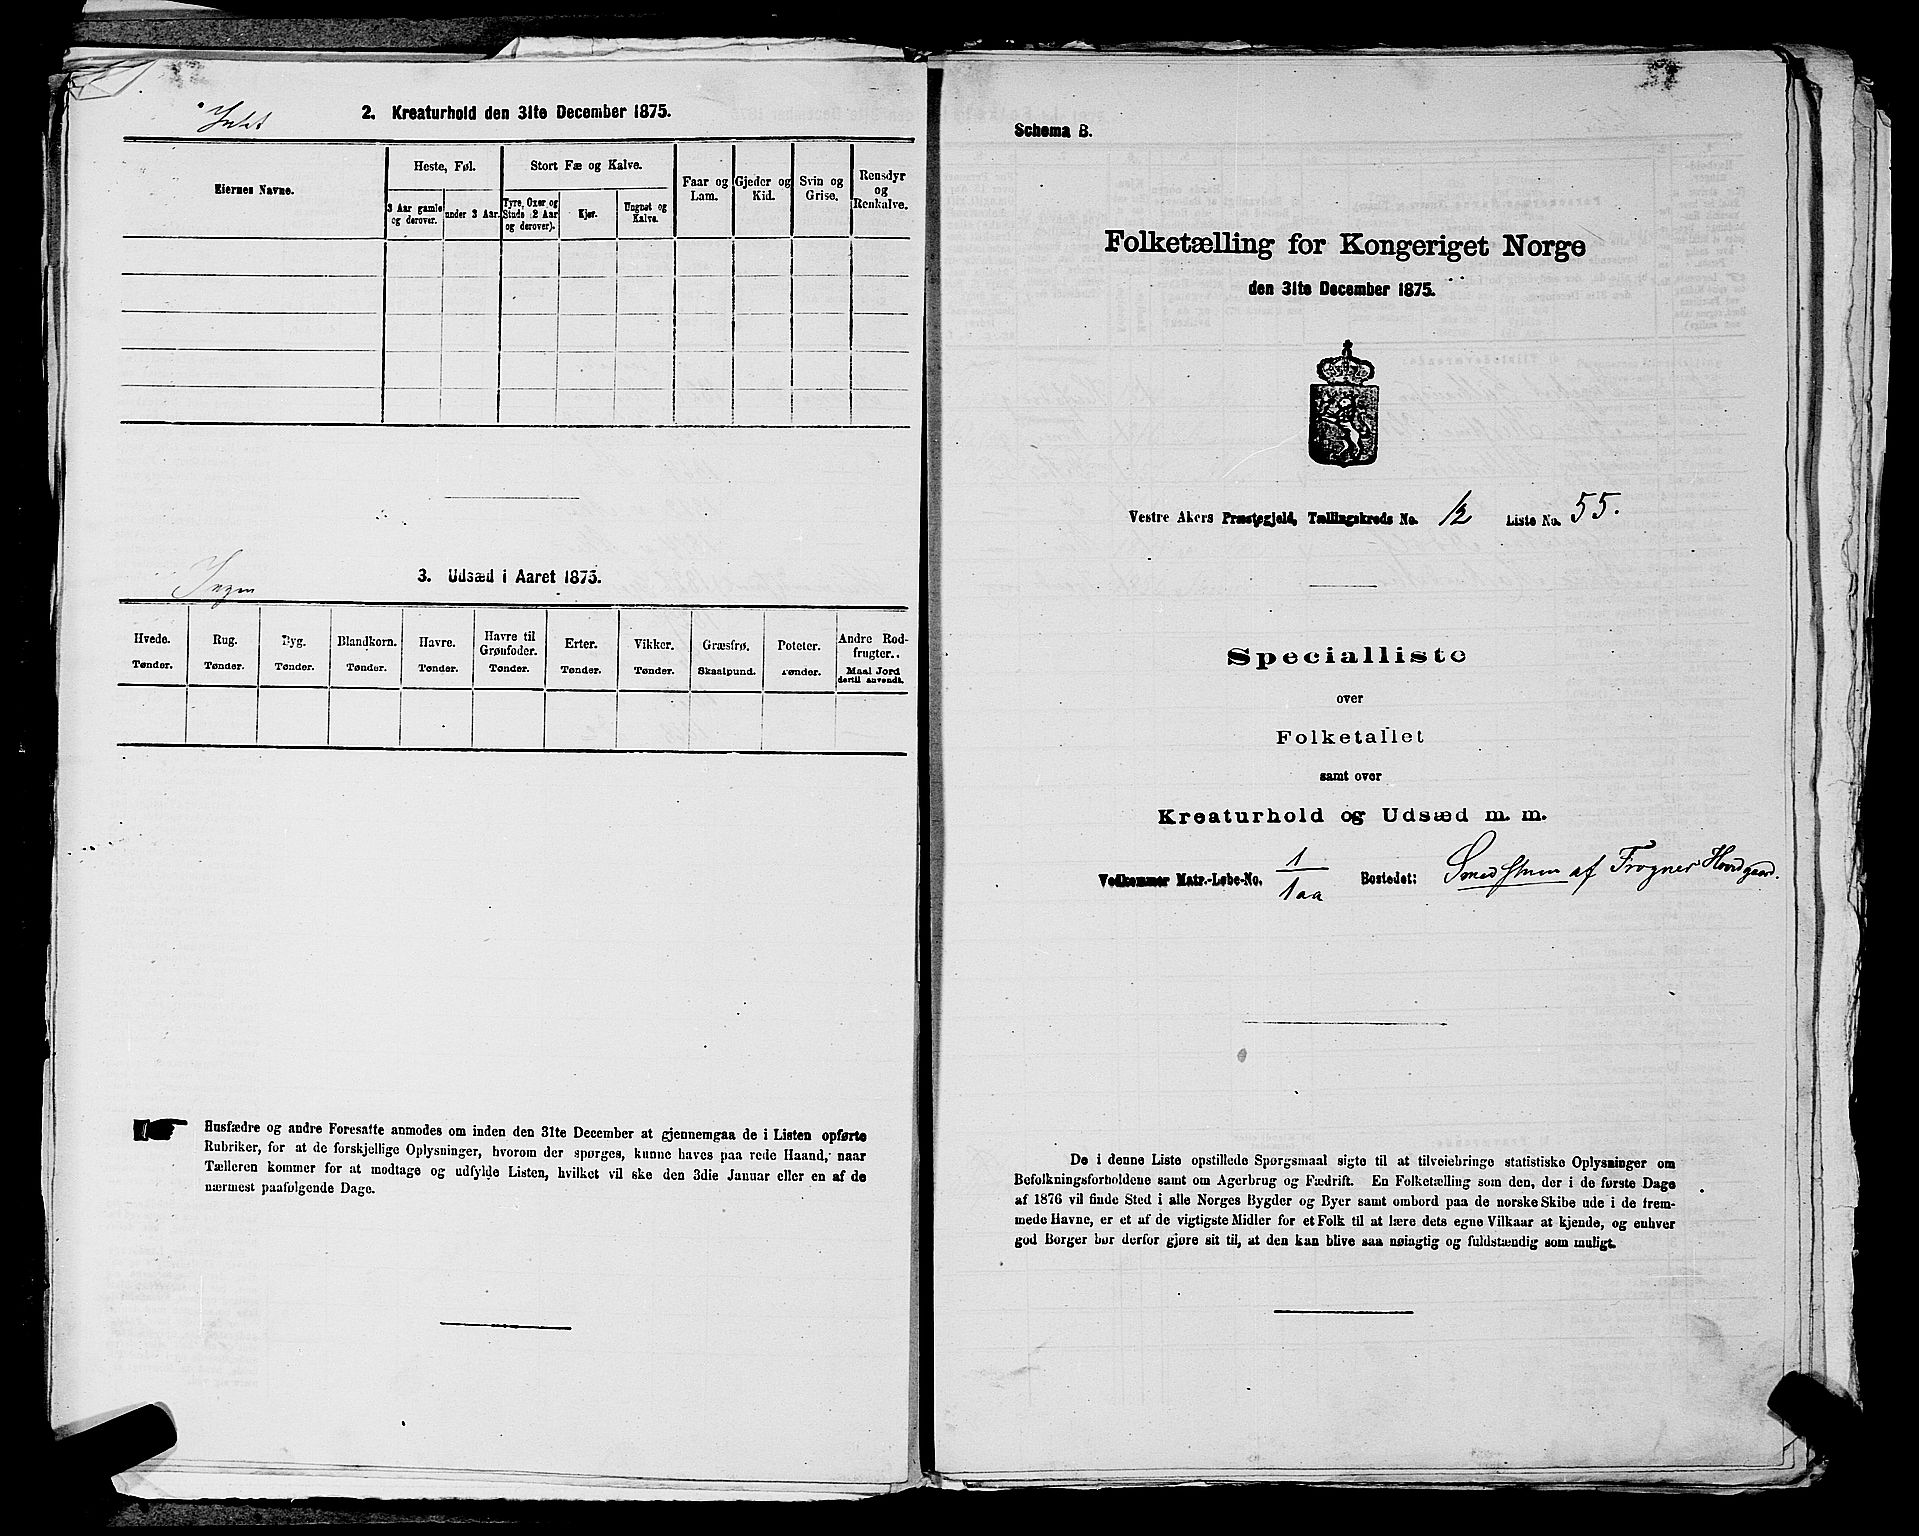 Intet
2. Kreaturhold den 31te December 1875.
Eiernes Navne.
Heste, Føl.
3 Aar gamle og derover.
under 3 Aar.
Stort Fæ og Kalve.
Tyre, Oxer og Stude (2 Aar og derover).
Kjør.
Ungnøt og Kalve.
Faar og Lam.
Gjeder og Kid.
Svin og Grise.
Rensdyr og Renkalve.
Ingen
3. Udsæd i Aaret 1875.
Hvede. Tønder.
Rug. Tønder.
Byg. Tønder.
Blandkorn. Tønder.
Havre. Tønder.
Havre til Grønfoder. Tønder.
Erter. Tønder.
Vikker. Tønder.
Græsfrø. Skaalpund.
Poteter. Tønder.
Andre Rodfrugter. Maal Jord dertil anvendt.
Husfædre og andre Foresatte anmodes om inden den 31te December at gjennemgaa de i Listen opførte
Rubriker, for at de forskjellige Oplysninger, hvorom der spørges, kunne haves paa rede Haand, naar
Tælleren kommer for at modtage og udfylde Listen, hvilket vil ske den 3die Januar eller en af de
nærmest paafølgende Dage.
Schema B.
Folketælling for Kongeriget Norge
den 31te December 1875.
Vestre Akers Præstegjeld, Tællingskreds No. 12 Liste No. 55.
Specialliste
over
Folketallet
samt over
Kreaturhold og Udsæd m. m.
Vedkommer Matr.-Løbe-No. 1/1aa Bostedet: Smedstuen af Frogner Hovdgaard.
De i denne Liste opstillede Spørgsmaal sigte til at tilveiebringe statistiske Oplysninger om
Befolkningsforholdene samt om Agerbrug og Fædrift. En Folketælling som den, der i de første Dage
af 1876 vil finde Sted i alle Norges Bygder og Byer samt ombord paa de norske Skibe ude i de frem-
mede Havne, er et af de vigtigste Midler for et Folk til at lære dets egne Vilkaar at kjende, og enhver
god Borger bør derfor gjøre sit til, at den kan blive saa nøiagtig og fuldstændig som muligt.